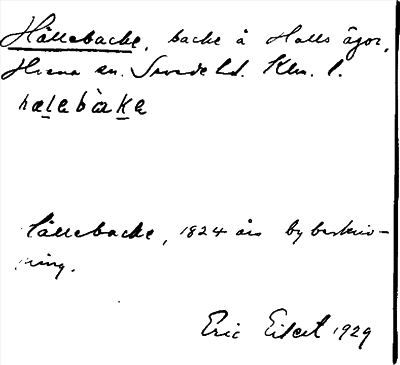 Hällebacke, backe å Halls ägor,
Hjorted sn. Sevede hd. Klm. l.
hælebàkę
Hällebacke, 1824 års bybeskriv-
ning.
Eric Elfert 1929